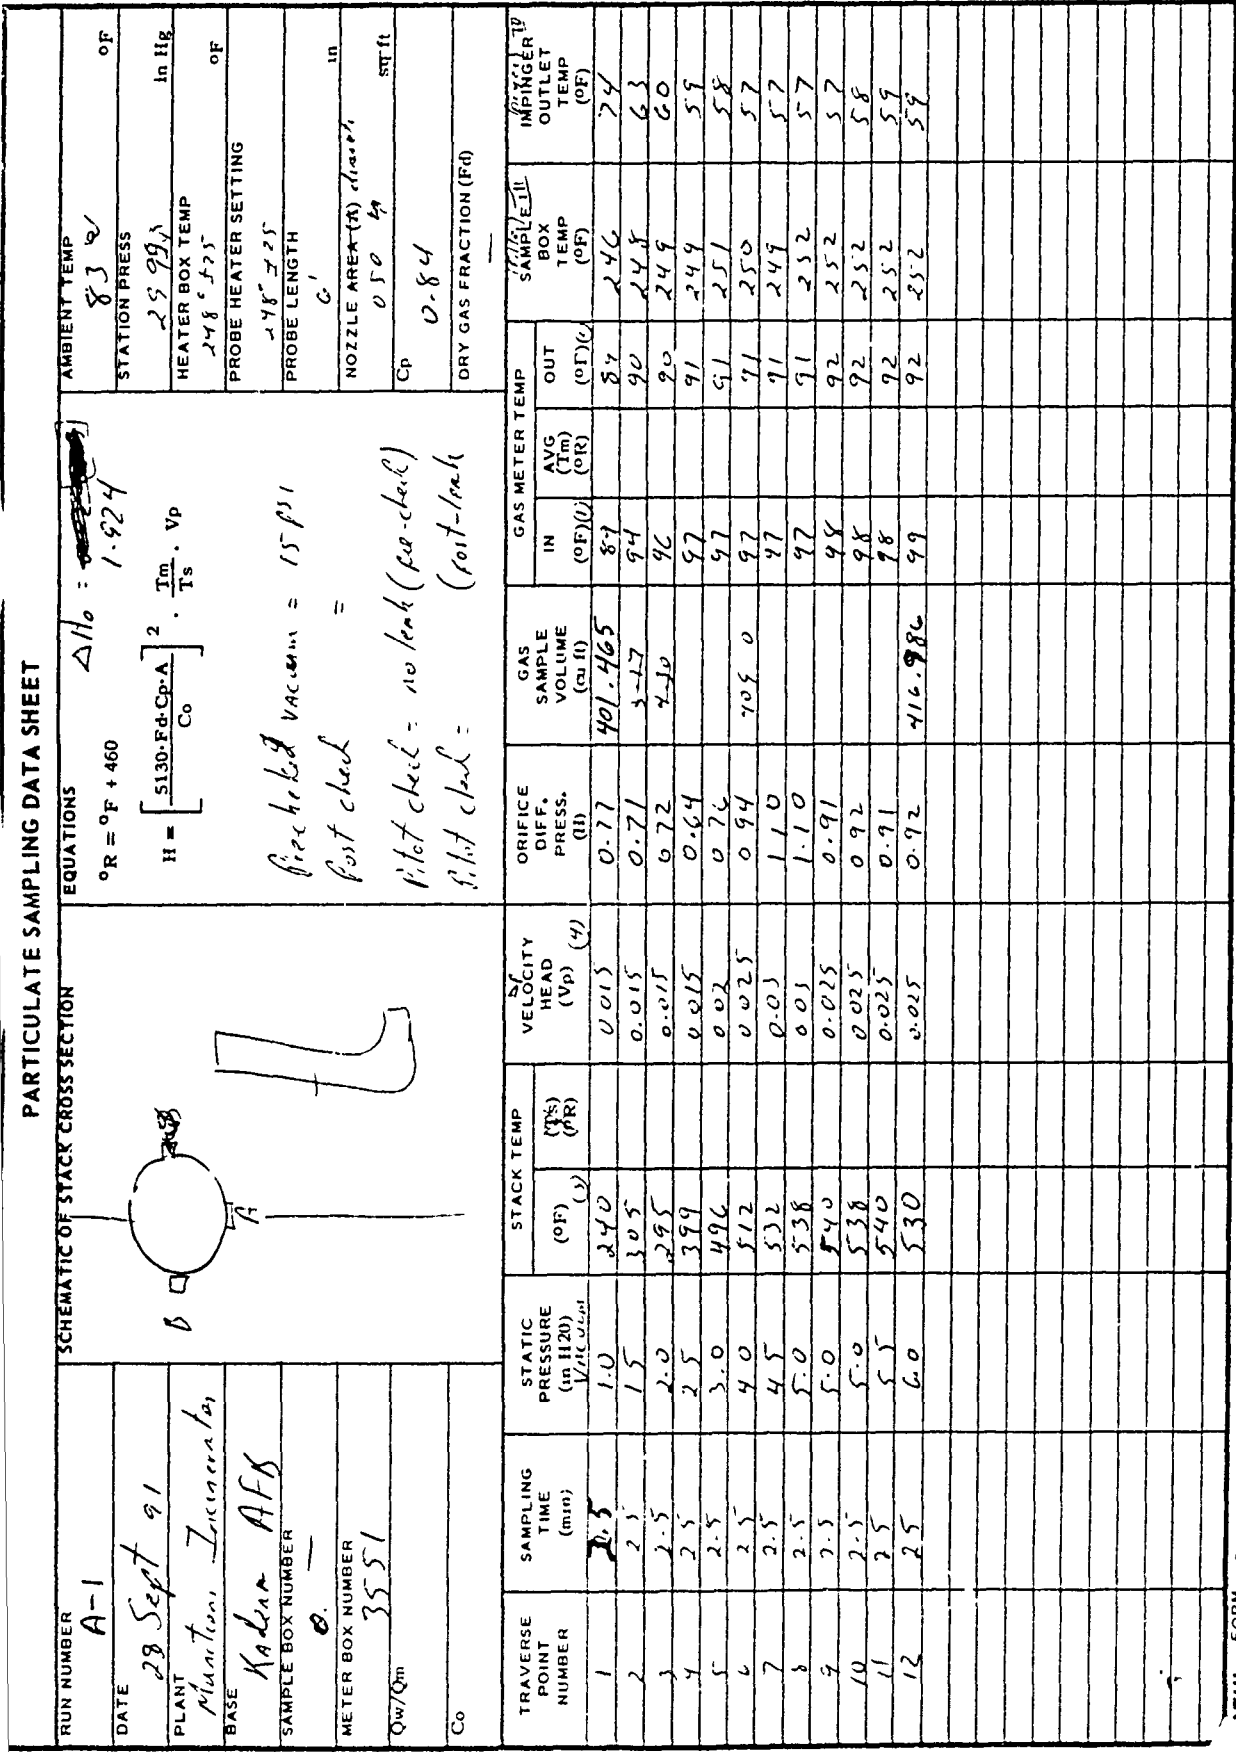 PARTICULATE SAMPLING DATA SHEET
RUN NUMBER
A-1
DATE
28 Sept 91
PLANT
Munitions Incinerator
BASE
Kadena AFB
SAMPLE BOX NUMBER
METER BOX NUMBER
3551
Qw/Qm
Co
SCHEMATIC OF STACK CROSS SECTION
B
A
EQUATIONS
ΔHo =
1.924
°R = °F + 460
H = [5130·Fd·Cp·A / Co]² · Tm/Ts · Vp
Prechecked vacuum = 15 psi
Post check =
Pitot check = no leak (pre-check)
Pitot check = (post-leak
AMBIENT TEMP
83 °F
STATION PRESS
29 993 in Hg
HEATER BOX TEMP
248° ±25 °F
PROBE HEATER SETTING
248° ±25
PROBE LENGTH
6' in
NOZZLE AREA (A) sq ft
0 50
Cp
0.84
DRY GAS FRACTION (Fd)
—
TRAVERSE POINT NUMBER
SAMPLING TIME (min)
STATIC PRESSURE (in H20) Vacuum
STACK TEMP
(°F) (3)
(Ts) (°R)
Δp VELOCITY HEAD (Vp) (4)
ORIFICE DIFF. PRESS. (H)
GAS SAMPLE VOLUME (cu ft)
GAS METER TEMP
IN (°F)(1)
AVG (Tm) (°R)
OUT (°F)(1)
SAMPLE BOX TEMP (°F)
IMPINGER OUTLET TEMP (°F)
1 2.5 1.0 240 0 015 0.77 401.465 89 89 246 74
2 2 5 1 5 305 0.015 0.71 90 248 63
3 2.5 2.0 295 0.015 0 72 96 90 249 60
4 2 5 2 5 399 0 015 0.64 97 91 249 59
5 2.5 3.0 496 0.02 0 76 97 91 251 58
6 2 5 4 0 512 0 025 0.94 409 0 97 91 250 57
7 2.5 4 5 532 0.03 1.10 97 91 249 57
8 2.5 5.0 538 0 03 1.10 97 91 252 57
9 2.5 5.0 540 0.025 0.91 98 92 252 57
10 2.5 5.0 538 0 025 0.92 98 92 252 58
11 2 5 5 5 540 0.025 0.91 98 92 252 59
12 2 5 6.0 530 0.025 0.92 416.986 99 92 252 59